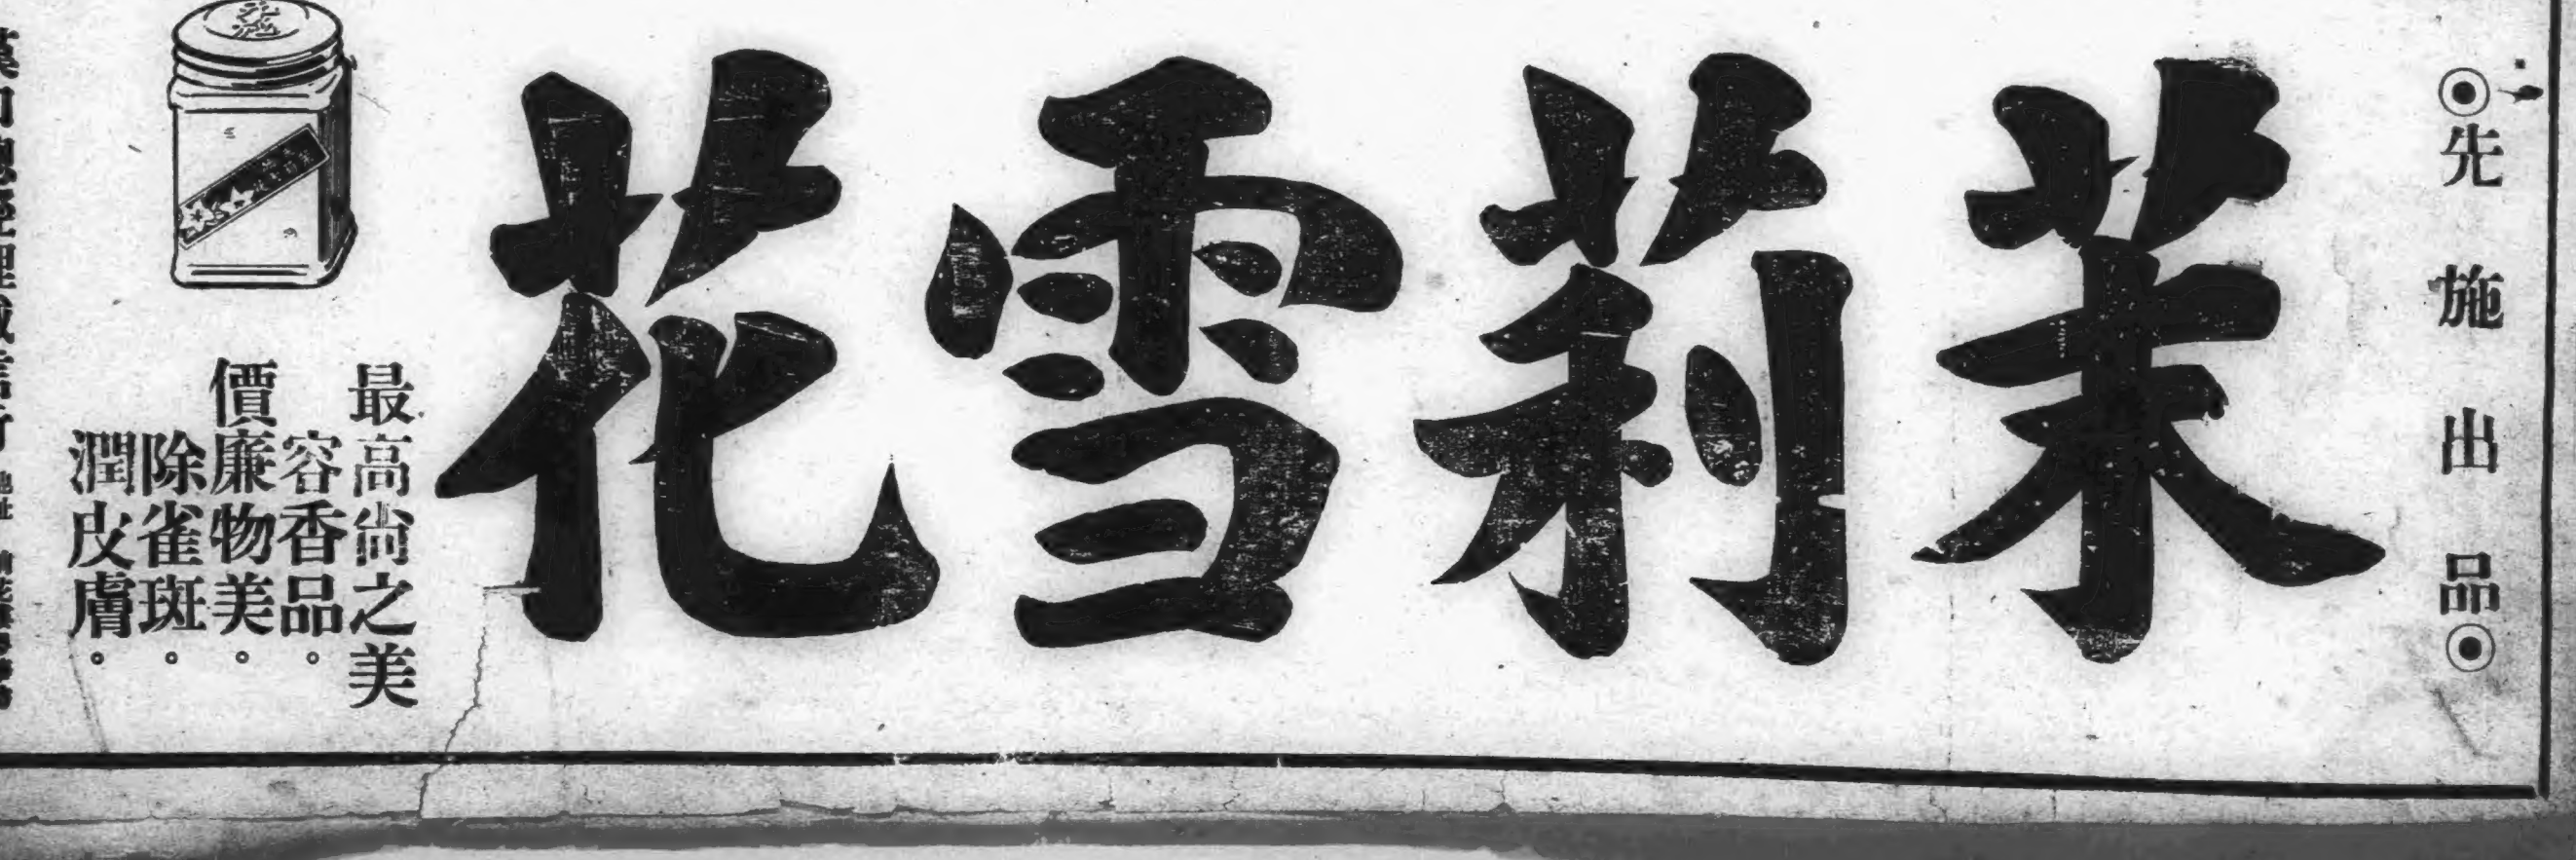 ◉先施出品◉
茉莉雪花
最高尚之美
容香品。
價廉物美。
除雀斑。
潤皮膚。